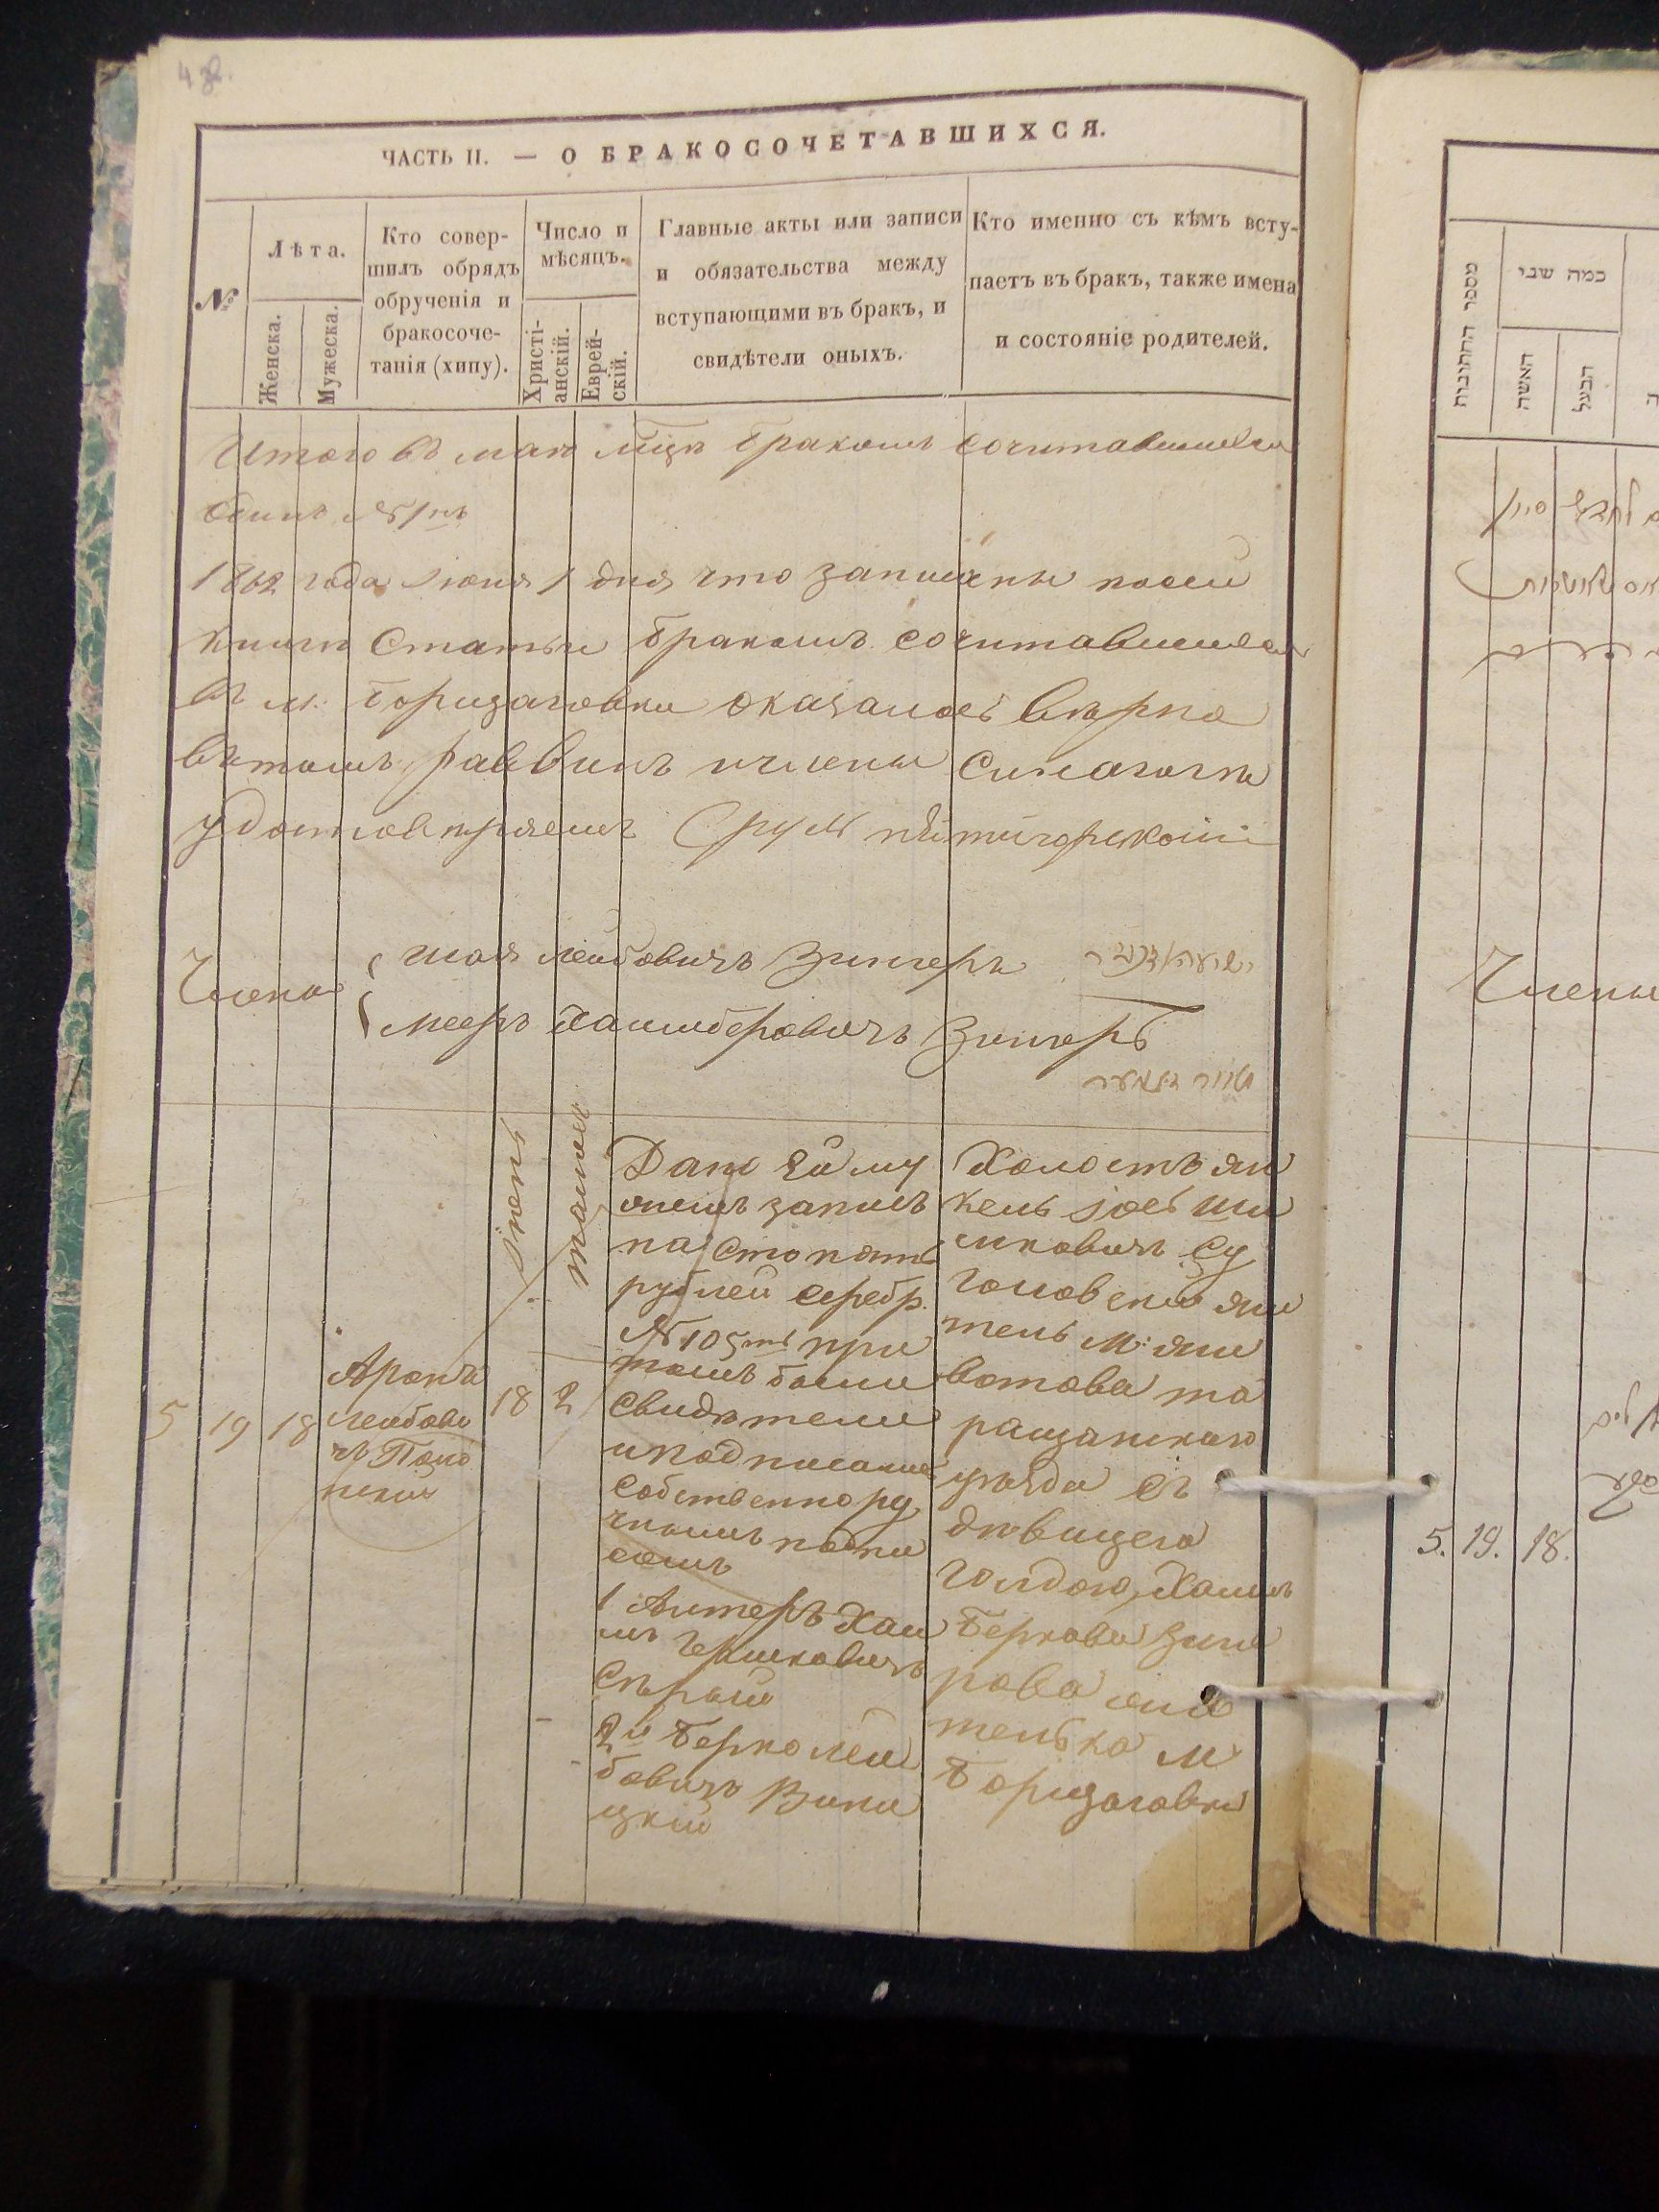 ЧАСТЬ II. — О БРАКОСОЧЕТАВШИХСЯ.
№
Лѣта.
Женска.
Мужеска.
Кто совер-
шилъ обрядъ
обрученія и
бракосоче-
танія (хипу).
Число и
мѣсяцъ.
Христі-
анскій.
Еврей-
скій.
Главные акты или записи
и обязательства между
вступающими въ бракъ, и
свидѣтели оныхъ.
Кто именно съ кѣмъ всту-
паетъ въ бракъ, также имена
и состояніе родителей.
Итого въ маѣ бракомъ сочитавшихся
одинъ №
1862 года Іюня 1 дня что записаны
книги Статьи бракомъ сочитавшихся
въ м: Борщаговки оказалось вѣрно
вѣтомъ раввинъ ичлены Синагоги
удостовѣряемъ Срул
Члены
Шоя Лейбовичъ Зингеръ
Мееръ Хаимберовичъ Зингеръ
5
19
18
Аронъ
Лейбови
чъ
Іюнь
18
тамозъ
2
Дано Ей му
жемъ запись
на Сто пять
рублей серебр.
№ 105 при
томъ были
Свидѣтели
иподписали
Собственнору
чнымъ подпи
сомъ
1 Алтеръ Хаи
мъ Гершковичъ
Сѣрый
2й Берко Лей
бовичъ Вини
цкій
Холостъ Ян
кель Іось Ши
мковичъ Су
головскій жи
тель М: Жи
вотова та
ращанскаго
уѣзда съ
дѣвицею
Голдою, Хаимъ
Беркова Зинге
рова жи
телька М
Борщаговки
מספר החתונות
כמה שני
האשה
הבעל
Члены
5. 19. 18.